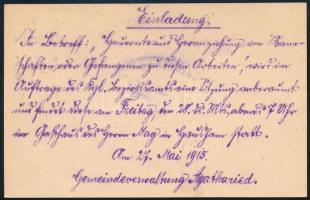 Einladung.
In Betreff: „Heuernte und Heranziehung von Mann-
schaften oder Gefangenen zu diesen Arbeiten", wird im
Auftrage des Kgl. Bezirksamts eine Sitzung anberaumt
und findet diese am Freitag den 28. ds. Mts. abends 7 Uhr
im Gasthaus des Herrn May in Hausham statt.
Am 27. Mai 1915.
Gemeindeverwaltung Agatharied.